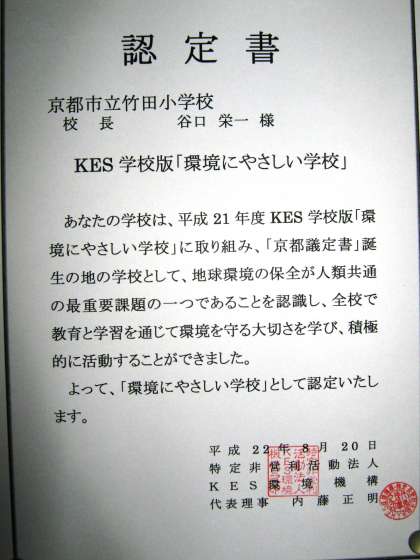 認定書
京都市立竹田小学校
校長 谷口 栄一 様
KES 学校版「環境にやさしい学校」
あなたの学校は、平成 21 年度 KES 学校版「環
境にやさしい学校」に取り組み、「京都議定書」誕
生の地の学校として、地球環境の保全が人類共通
の最重要課題の一つであることを認識し、全校で
教育と学習を通じて環境を守る大切さを学び、積極
的に活動することができました。
よって、「環境にやさしい学校」として認定いたし
ます。
平成 22年 3月 20日
特定非営利活動法人
KES環境機構
代表理事 内藤正明